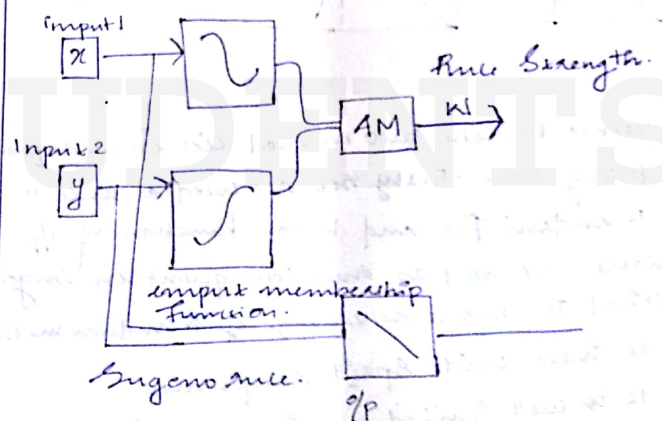 input1
x
Rule Strength.
AM
W
Input 2
y
input membership
function.
Sugeno rule.
o/p
UDENTS